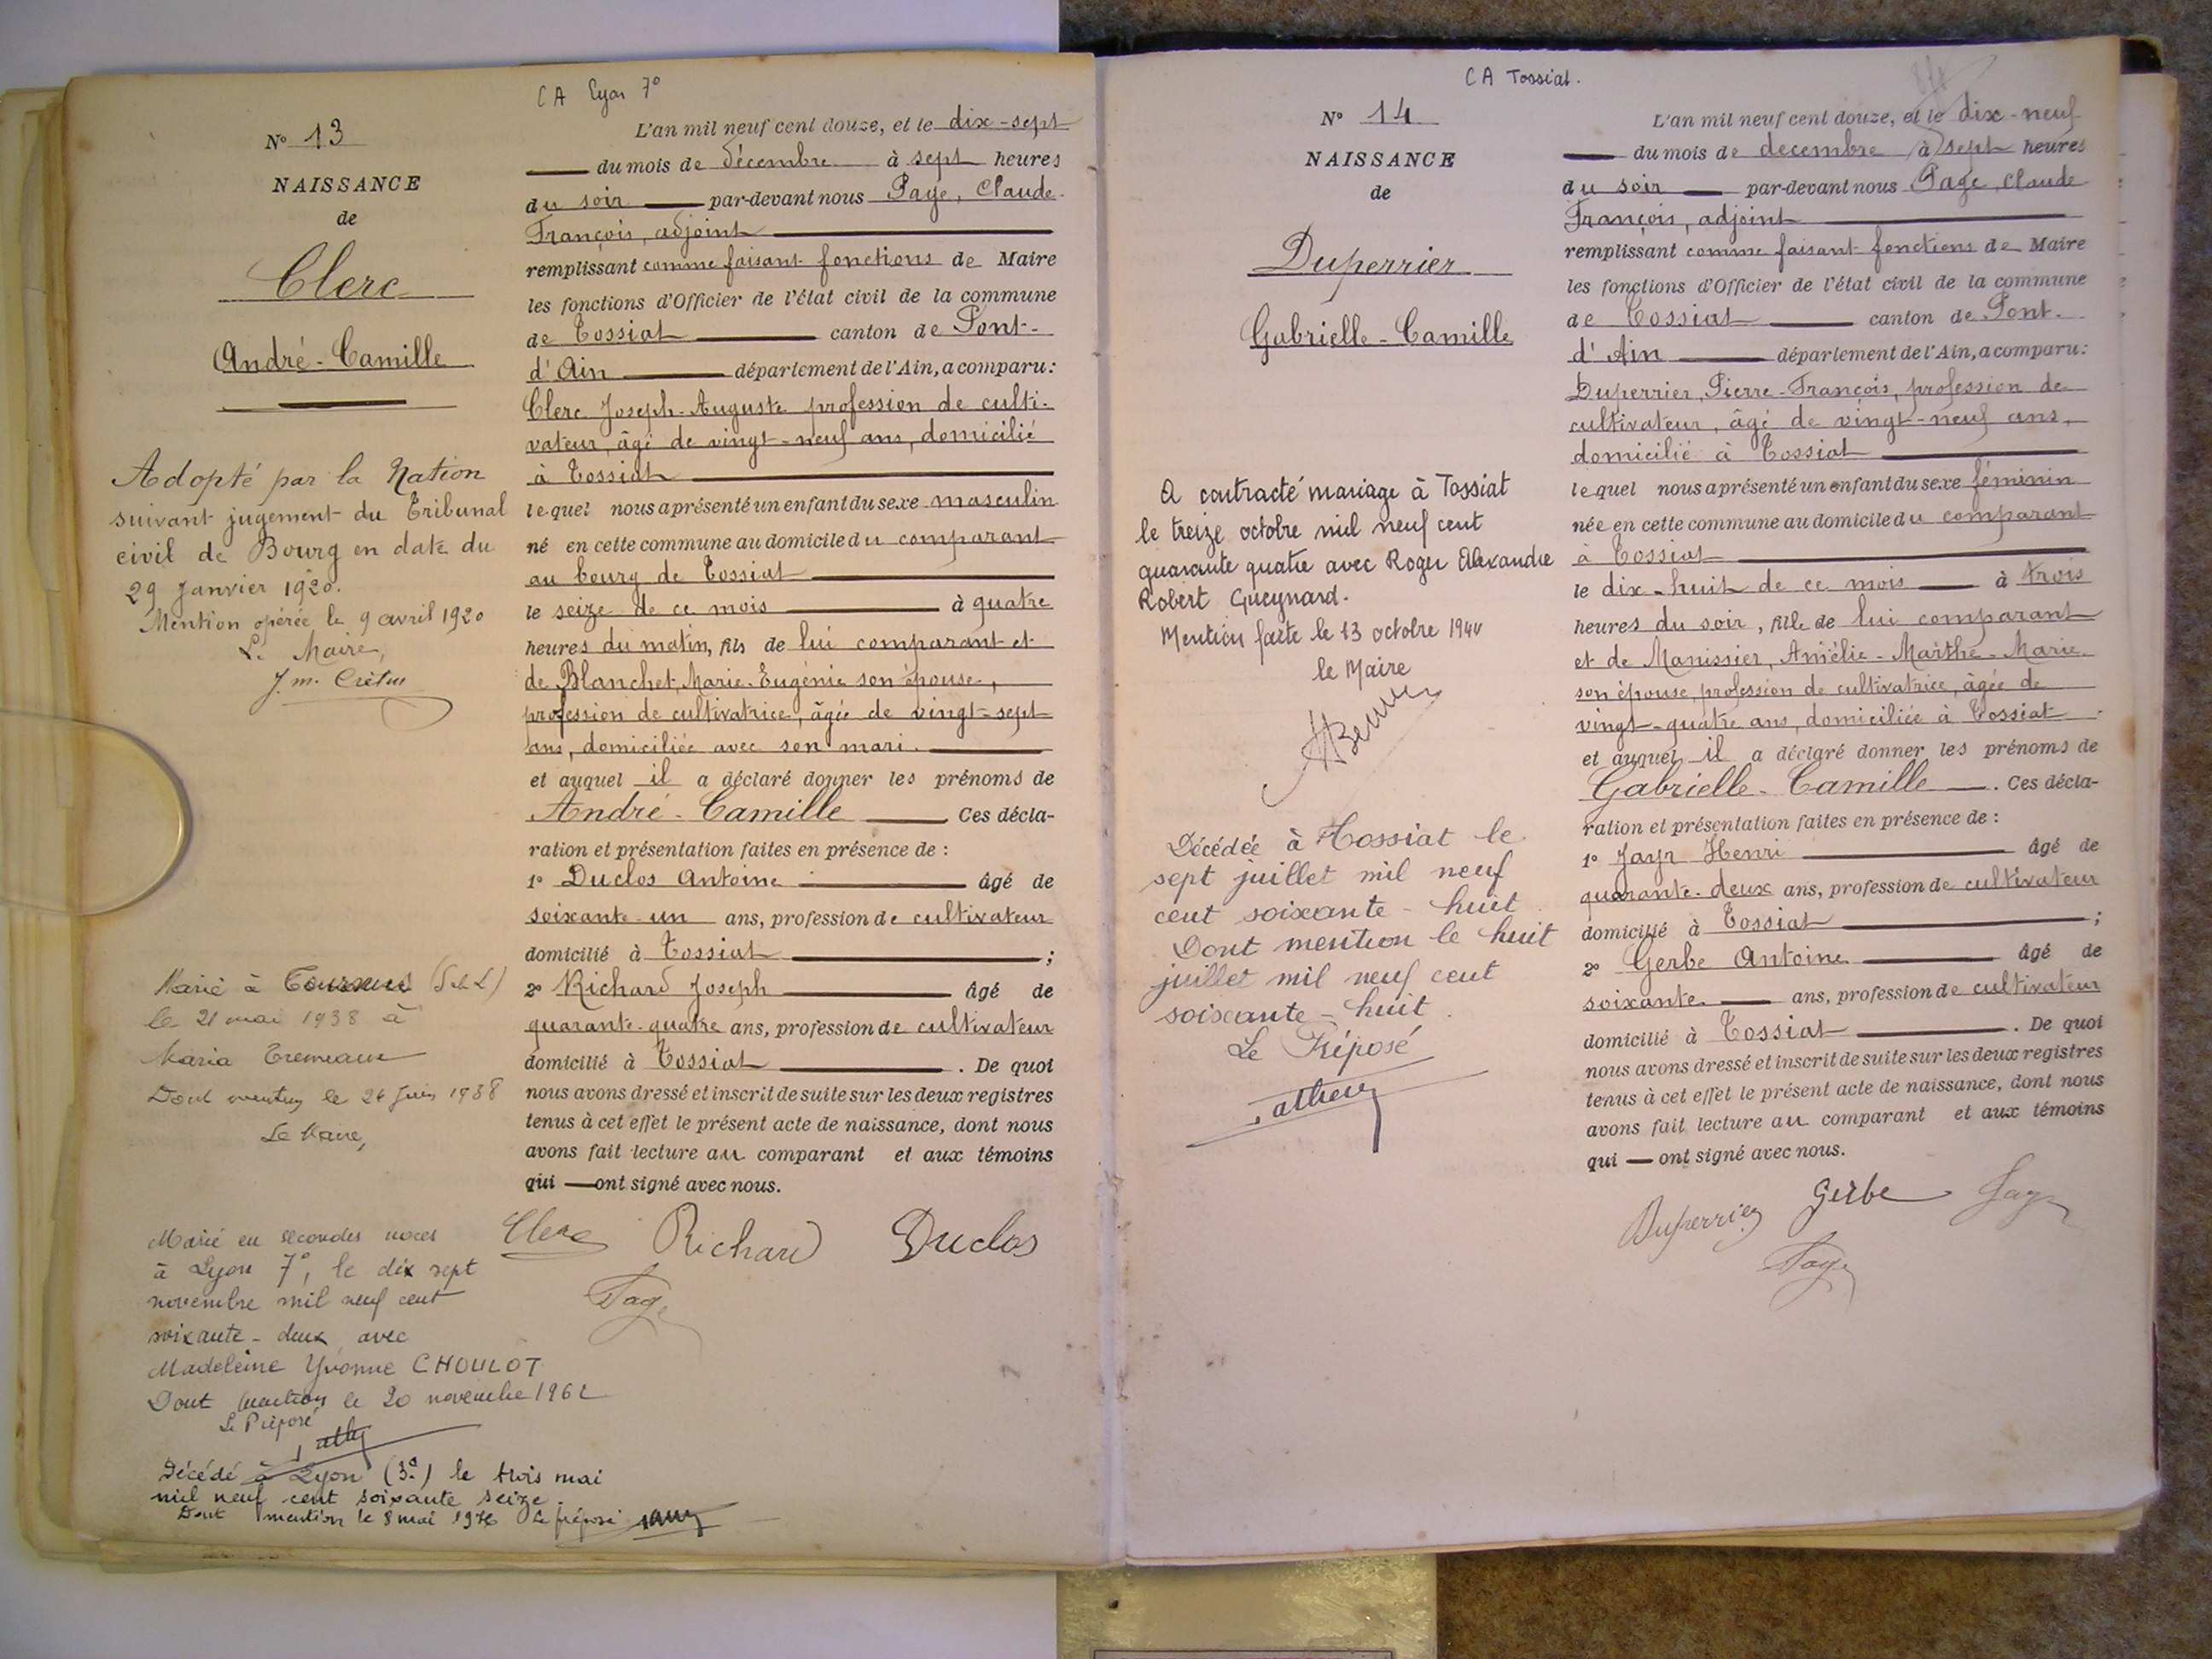 CA Lyon 7°
N° 13
NAISSANCE
de
Clerc
André-Camille
Adopté par la Nation
suivant jugement du Tribunal
civil de Bourg en date du
29 Janvier 1920.
Mention opérée le 9 avril 1920
Le Maire,
J. M.
Marié à Tournus (S et L)
le 21 mai 1938 à
Maria
Dont mention le 24 Juin 1938
Le Maire,
Marié en secondes noces
à Lyon 7°, le dix sept
novembre mil neuf cent
soixante-deux avec
Madeleine Yvonne CHOULOT
Dont mention le 20 novembre 1962
Le Préposé
Décédé à Lyon (3e) le trois mai
mil neuf cent soixante seize
Dont mention le 8 mai 1976 Le préposé
L'an mil neuf cent douze, et le dix-sept
du mois de décembre à sept heures
du soir par-devant nous Page, Claude
François, adjoint
remplissant comme faisant fonctions de Maire
les fonctions d'Officier de l'état civil de la commune
de Tossiat canton de Pont-
d'Ain département de l'Ain, a comparu:
Clerc Joseph-Auguste profession de culti-
vateur, âgé de vingt-neuf ans, domicilié
à Tossiat
lequel nous a présenté un enfant du sexe masculin
né en cette commune au domicile du comparant
au bourg de Tossiat
le seize de ce mois à quatre
heures du matin, fils de lui comparant et
de Blanchet, Marie-Eugénie son épouse,
profession de cultivatrice, âgée de vingt-sept
ans, domiciliée avec son mari.
et auquel il a déclaré donner les prénoms de
André-Camille Ces décla-
ration et présentation faites en présence de :
1° Duclos Antoine âgé de
soixante-un ans, profession de cultivateur
domicilié à Tossiat ;
2° Richard Joseph âgé de
quarante-quatre ans, profession de cultivateur
domicilié à Tossiat . De quoi
nous avons dressé et inscrit de suite sur les deux registres
tenus à cet effet le présent acte de naissance, dont nous
avons fait lecture au comparant et aux témoins
qui ont signé avec nous.
Clerc Richard Duclos
Page
CA Tossiat.
N° 14
NAISSANCE
de
Duperrier
Gabrielle-Camille
A contracté mariage à Tossiat
le treize octobre mil neuf cent
quarante quatre avec Roger Alexandre
Robert Gueynard.
Mention faite le 13 octobre 1944
le Maire
Décédée à Tossiat le
sept juillet mil neuf
cent soixante-huit
Dont mention le huit
juillet mil neuf cent
soixante-huit.
Le Préposé
L'an mil neuf cent douze, et le dix-neuf
du mois de decembre à sept heures
du soir par-devant nous Page, Claude
François, adjoint
remplissant comme faisant fonctions de Maire
les fonctions d'Officier de l'état civil de la commune
de Tossiat canton de Pont-
d'Ain département de l'Ain, a comparu:
Duperrier, Pierre-François, profession de
cultivateur, âgé de vingt-neuf ans,
domicilié à Tossiat
lequel nous a présenté un enfant du sexe féminin
née en cette commune au domicile du comparant
à Tossiat
le dix-huit de ce mois à trois
heures du soir, fille de lui comparant
et de Manissier, Amélie-Marthe-Marie
son épouse, profession de cultivatrice, âgée de
vingt-quatre ans, domiciliée à Tossiat
et auquel il a déclaré donner les prénoms de
Gabrielle-Camille . Ces décla-
ration et présentation faites en présence de :
1° Jayr Henri âgé de
quarante-deux ans, profession de cultivateur
domicilié à Tossiat ;
2° Gerbe Antoine âgé de
soixante ans, profession de cultivateur
domicilié à Tossiat . De quoi
nous avons dressé et inscrit de suite sur les deux registres
tenus à cet effet le présent acte de naissance, dont nous
avons fait lecture au comparant et aux témoins
qui ont signé avec nous.
Duperrier Gerbe Jayr
Page